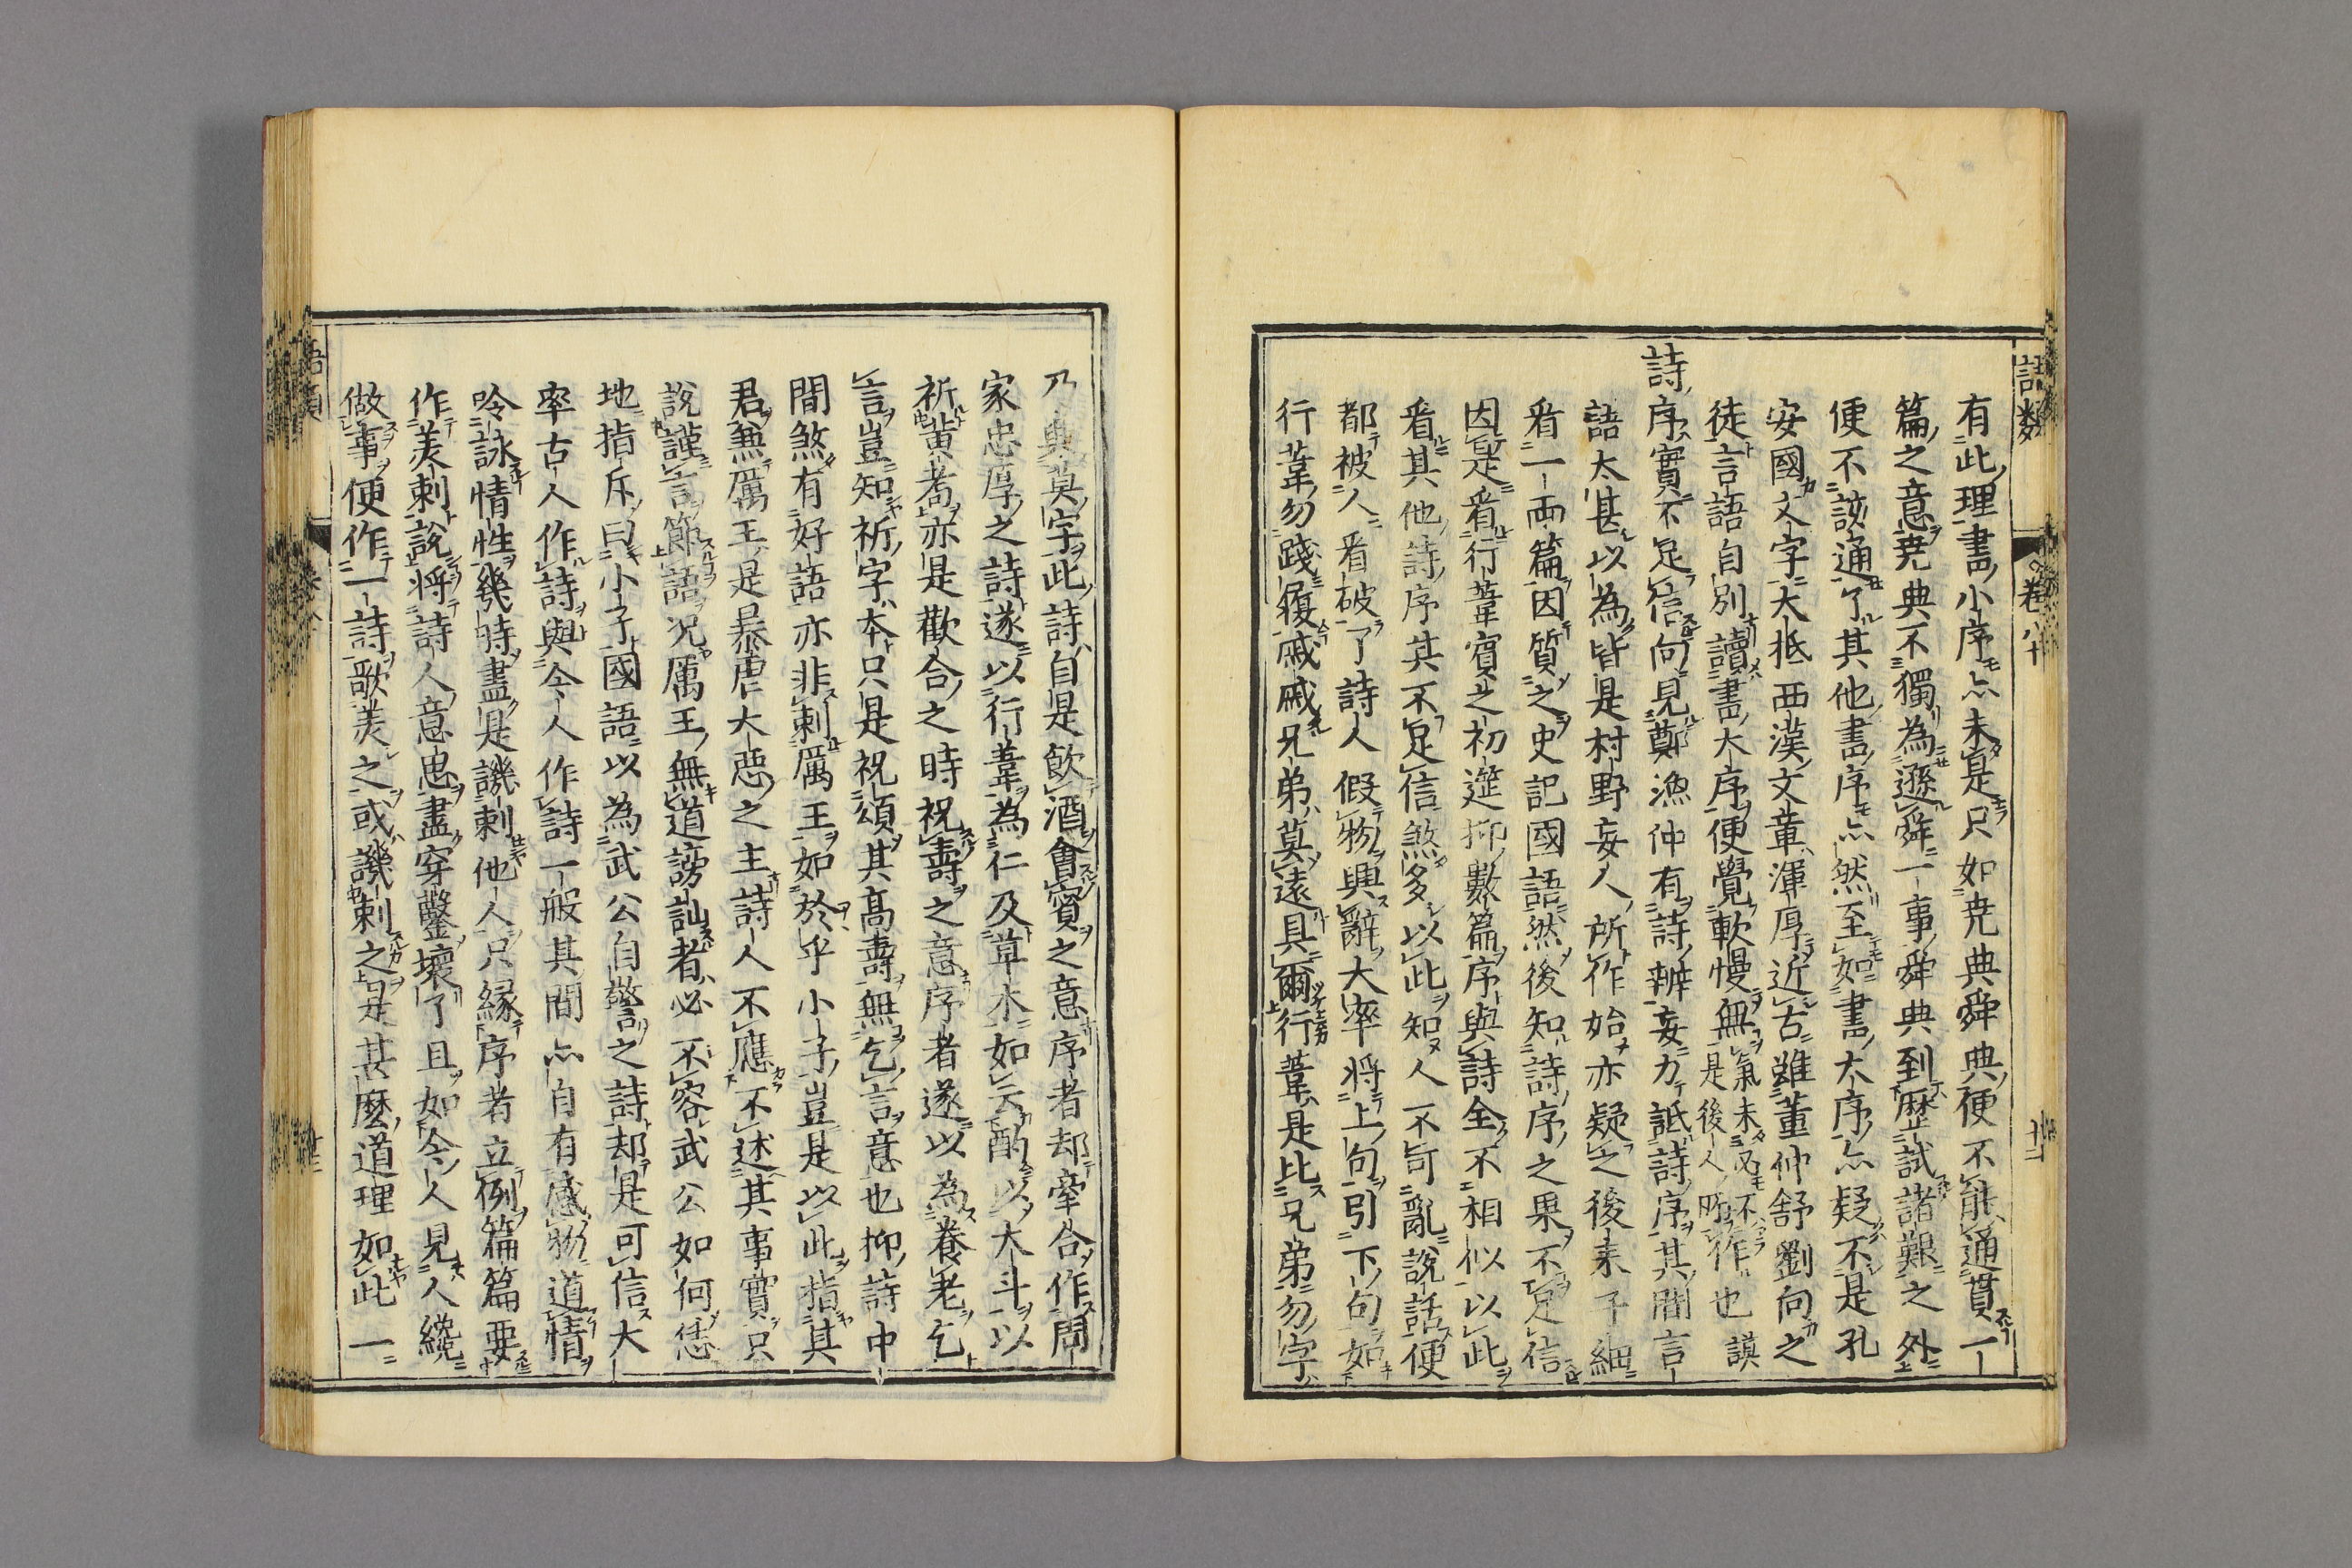 語類
卷八十
十二
有此理書小序亦未是只如堯典舜典便不能通貫一
篇之意堯典不獨為遜舜一事舜典到歷試諸艱之外
便不該通了其他書序亦然至如書大序亦疑不是孔
安國文字大抵西漢文章渾厚近古雖董仲舒劉向之
徒言語自別讀書大序便覺軟慢無氣未必不是後人所作也謨
詩序實不足信向見鄭漁仲有詩辨妄力詆詩序其間言
語太甚以為皆是村野妄人所作始亦疑之後来子細
看一兩篇因質之史記國語然後知詩序之果不足信
因是看行葦賓之初筵抑數篇序與詩全不相似以此
看其他詩序其不足信煞多以此知人不可亂說話便
都被人看破了詩人假物興辭大率將上句引下句如
行葦勿踐履戚戚兄弟莫遠具爾行葦是比兄弟勿字
乃興莫字此詩自是飲酒會賓之意序者却牽合作周
家忠厚之詩遂以行葦為仁及草木如云酌以大斗以
祈黄耇亦是歡合之時祝壽之意序者遂以為養老乞
言豈知祈字本只是祝頌其高壽無乞言意也抑詩中
間煞有好語亦非刺厲王如於乎小子豈是以此指其
君無厲王是暴虐大惡之主詩人不應不述其事實只
說謹言節語况厲王無道謗訕者必不容武公如何恁
地指斥曰小子國語以為武公自警之詩却是可信大
率古人作詩與今人作詩一般其間亦自有感物道情
吟詠情性幾時盡是譏刺他人只緣序者立例篇篇要
作美刺說將詩人意思盡穿鑿壞了且如今人見人纔
做事便作一詩歌美之或譏刺之是甚麼道理如此一
語類
十三